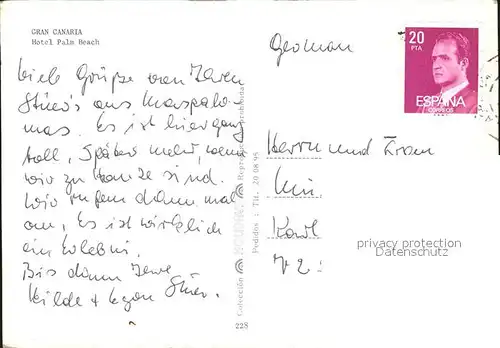 GRAN CANARIA
Hotel Palm Beach
Viele Grüße von Ihren
aus Maspalo-
mas. Es ist hier ganz
toll, Später mehr, wenn
wir zu Hause sind.
Wir rufen dann mal
an, Es ist wirklich
ein Erlebnis.
Bis dann Ihre
Hilde + Egon
228
Pedidos : Tlf. 20 08 95
Germany
20
PTA
ESPAÑA
CORREOS
Herrn und Frau
privacy protection
Datenschutz